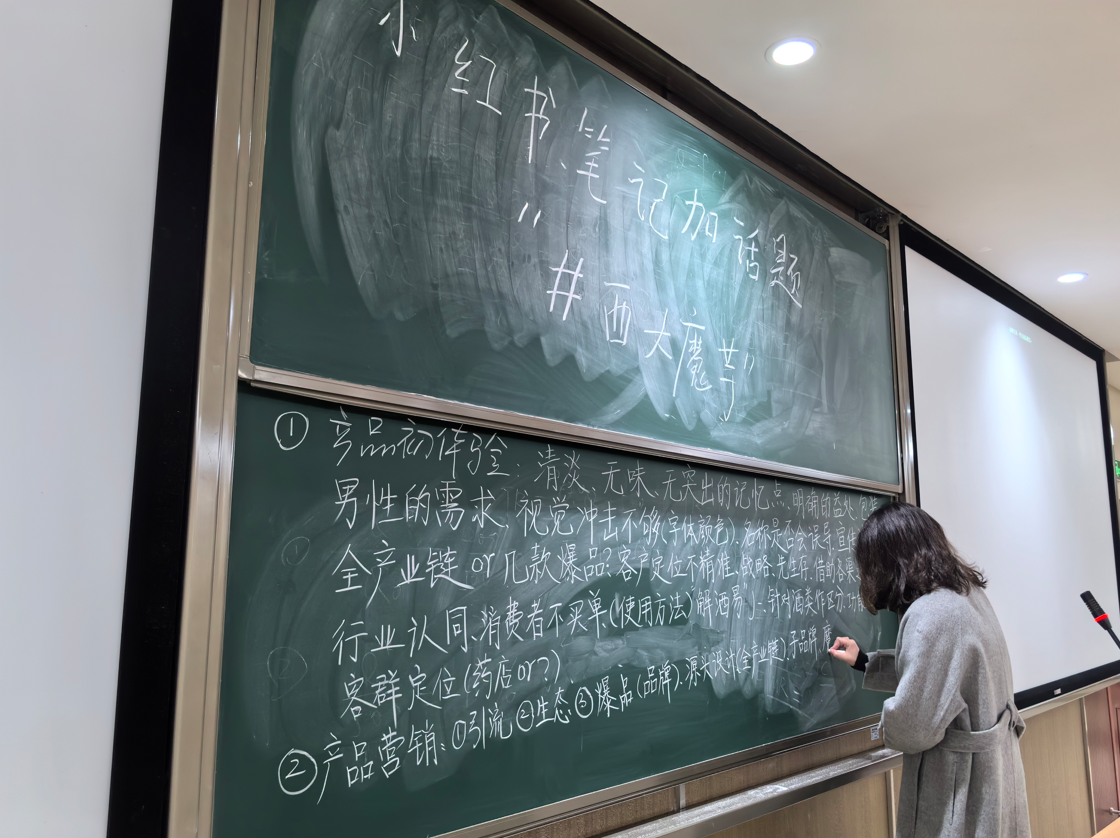 小红书笔记加话题
"#西大魔芋"
① 产品初体验：清淡、无味、无突出的记忆点,明确的益处,包装
男性的需求,视觉冲击不够(字体颜色),名称是否会误导,宣传
全产业链 or 几款爆品?客户定位不精准,战略、先生存,借助各渠
行业认同、消费者不买单(使用方法)解酒易」:针对酒类作区分,功能
客群定位(药店or?)
② 产品营销:①引流②生态③爆品(品牌).源头设计(全产业链),子品牌,魔